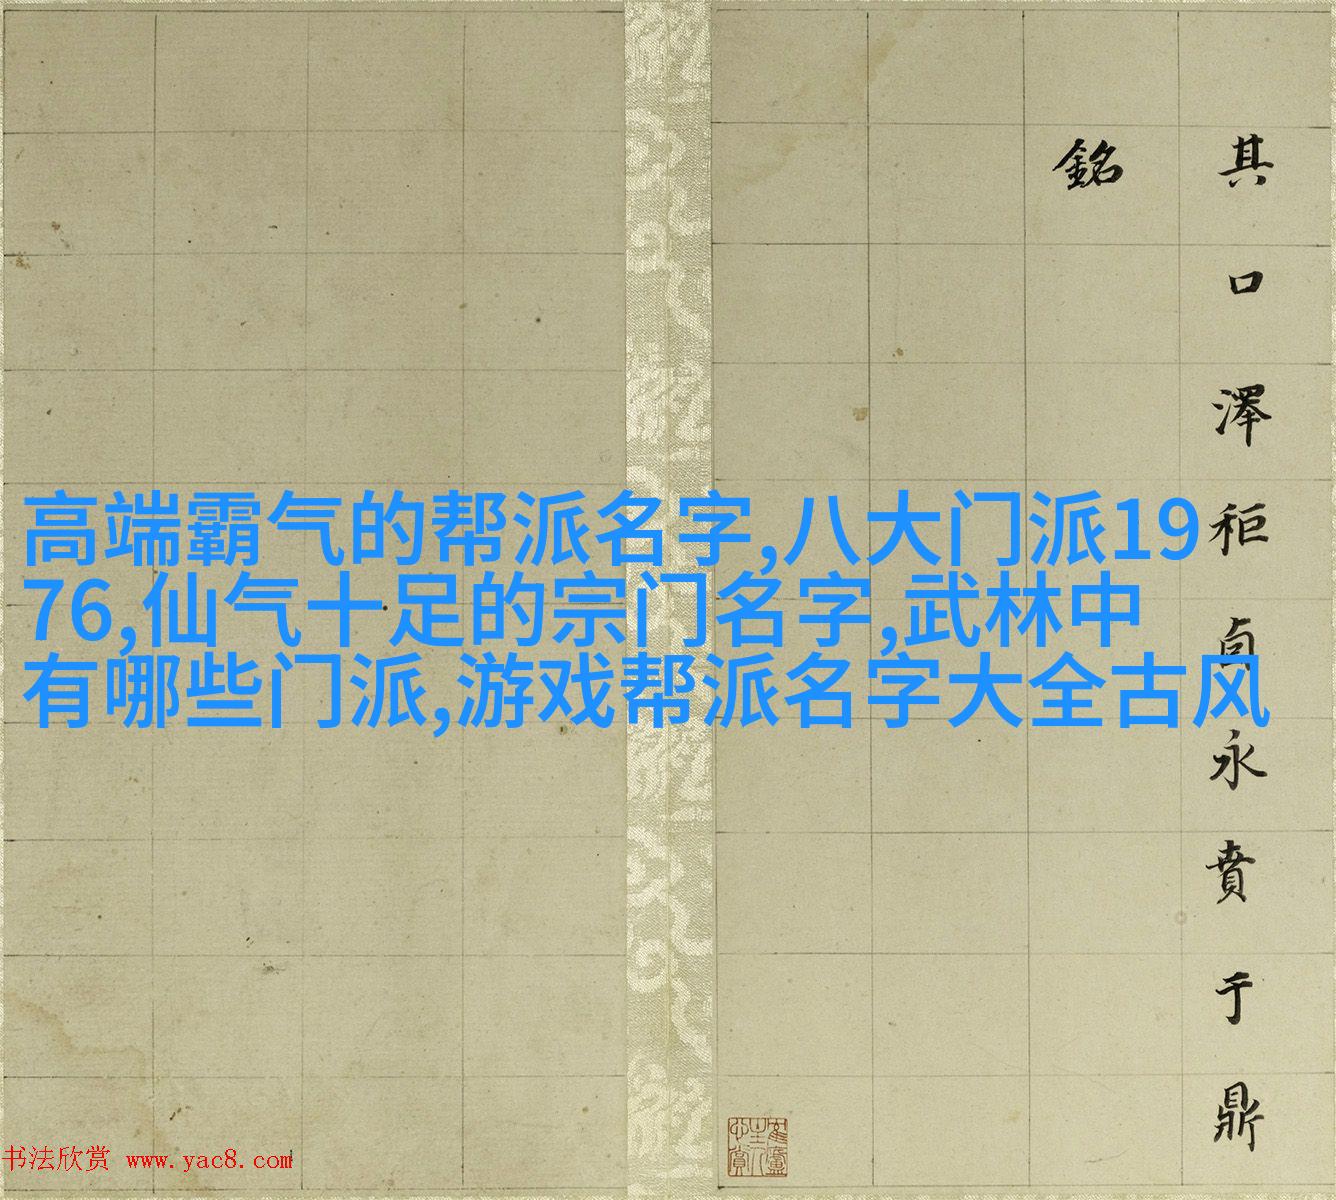 其口澤秬卣永賁于鼎
銘
高端霸气的帮派名字,八大门派19
76,仙气十足的宗门名字,武林中
有哪些门派,游戏帮派名字大全古风
书法欣赏 www.yac8.com